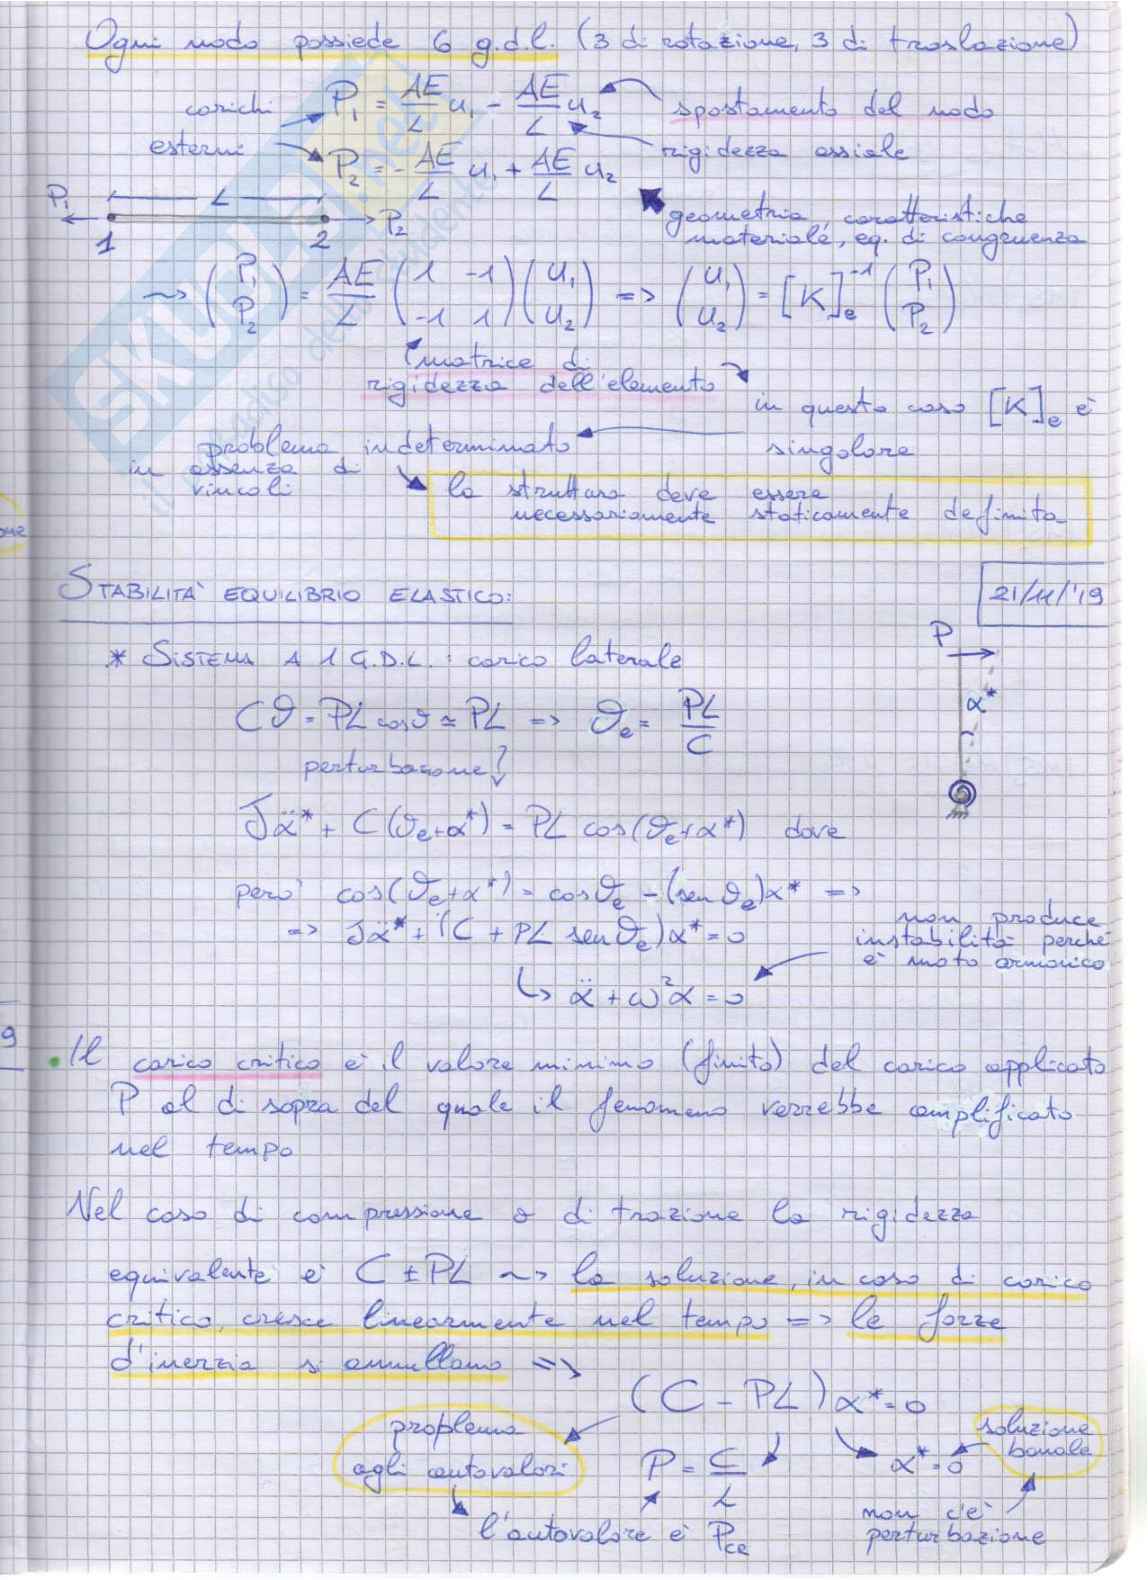 Ogni nodo possiede 6 g.d.l. (3 di rotazione, 3 di traslazione)
carichi esterni
P₁ = AE/L u₁ - AE/L u₂
spostamento del nodo
rigidezza assiale
P₂ = -AE/L u₁ + AE/L u₂
geometria, caratteristiche
materiale, eq. di congruenza
P₁ L P₂
1 2
~> (P₁ P₂) = AE/L (1 -1 -1 1) (u₁ u₂) => (u₁ u₂) = [K]ₑ⁻¹ (P₁ P₂)
matrice di
rigidezza dell'elemento
in questo caso [K]ₑ è
singolare
problema indeterminato
in assenza di
vincoli
la struttura deve essere
necessariamente staticamente definita
STABILITA' EQUILIBRIO ELASTICO:
21/11/'19
* SISTEMA A 1 G.D.L.: carico laterale
P
α*
Cϑ = PL cosϑ ≃ PL => ϑₑ = PL/C
perturbazione
Jα̈* + C(ϑₑ+α*) = PL cos(ϑₑ+α*) dove
però cos(ϑₑ+α*) = cosϑₑ - (sen ϑₑ)α* =>
=> Jα̈* + (C + PL sen ϑₑ)α* = 0
non produce
instabilità perché
è moto armonico
↳ α̈ + ω²α = 0
• Il carico critico è il valore minimo (finito) del carico applicato
P al di sopra del quale il fenomeno verrebbe amplificato
nel tempo
Nel caso di compressione o di trazione la rigidezza
equivalente è C ± PL ~> la soluzione, in caso di carico
critico, cresce linearmente nel tempo => le forze
d'inerzia si annullano =>
(C - PL) α* = 0
problema
agli autovalori
P = C/L
α* = 0
soluzione
banale
l'autovalore è
non c'è
perturbazione
one
9
SKUOLA.net